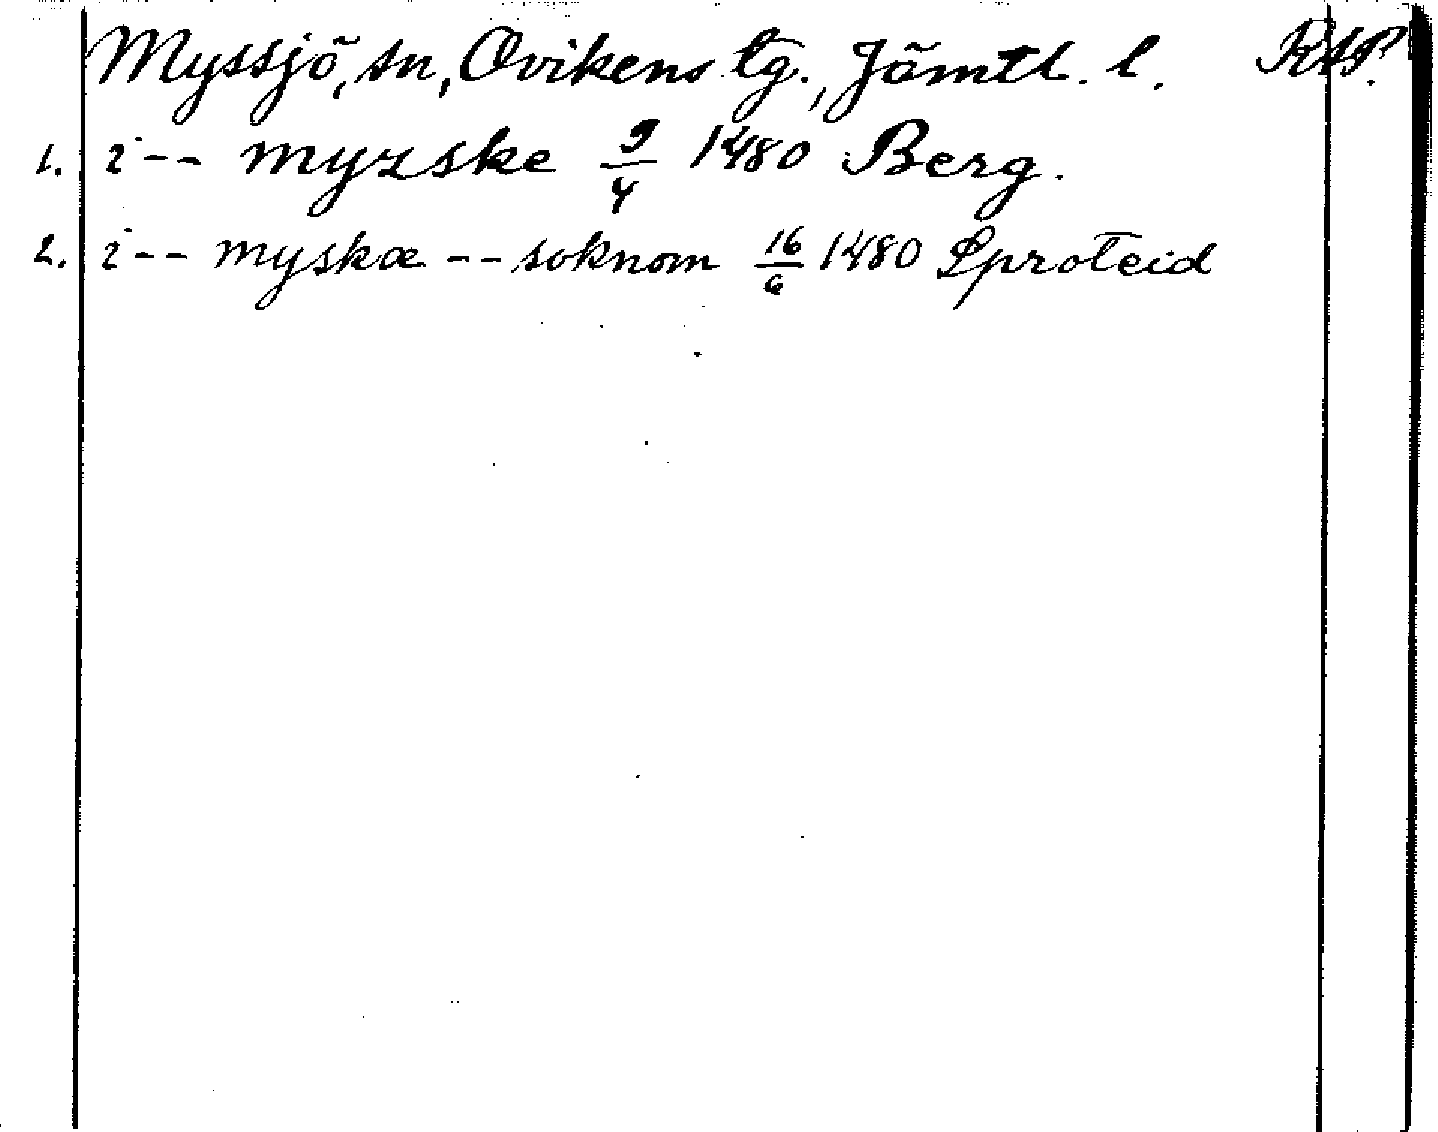 Myssjö, sn, Ovikens tg., Jämtl. l. RAP.
1. i -- myzske 9/4 1480 Berg.
2. i -- myskæ -- soknom 16/6 1480 Sproteid